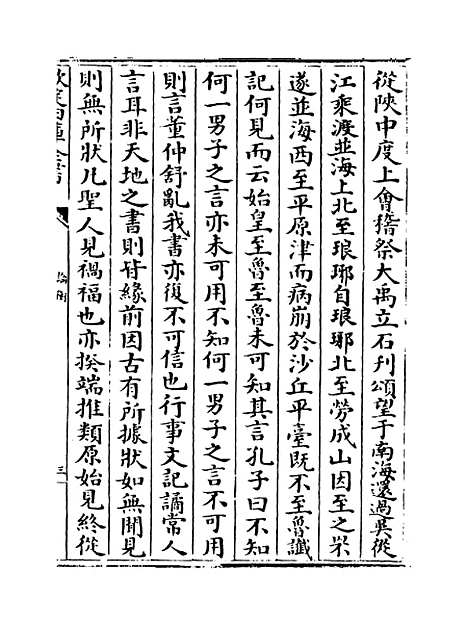 從陜中度上會稽祭大禹立石刋頌望于南海還過吳從
江乘渡並海上北至琅琊自琅琊北至勞成山因至之罘
遂並海西至平原津而病崩於沙丘平臺既不至魯䜟
記何見而云始皇至魯至魯未可知其言孔子曰不知
何一男子之言亦未可用不知何一男子之言不可用
則言董仲舒亂我書亦復不可信也行事文記譎常人
言耳非天地之書則皆緣前因古有所據狀如無聞見
則無所狀凡聖人見禍福也亦揆端推類原始見終從
欽定四庫全書
論衡
三